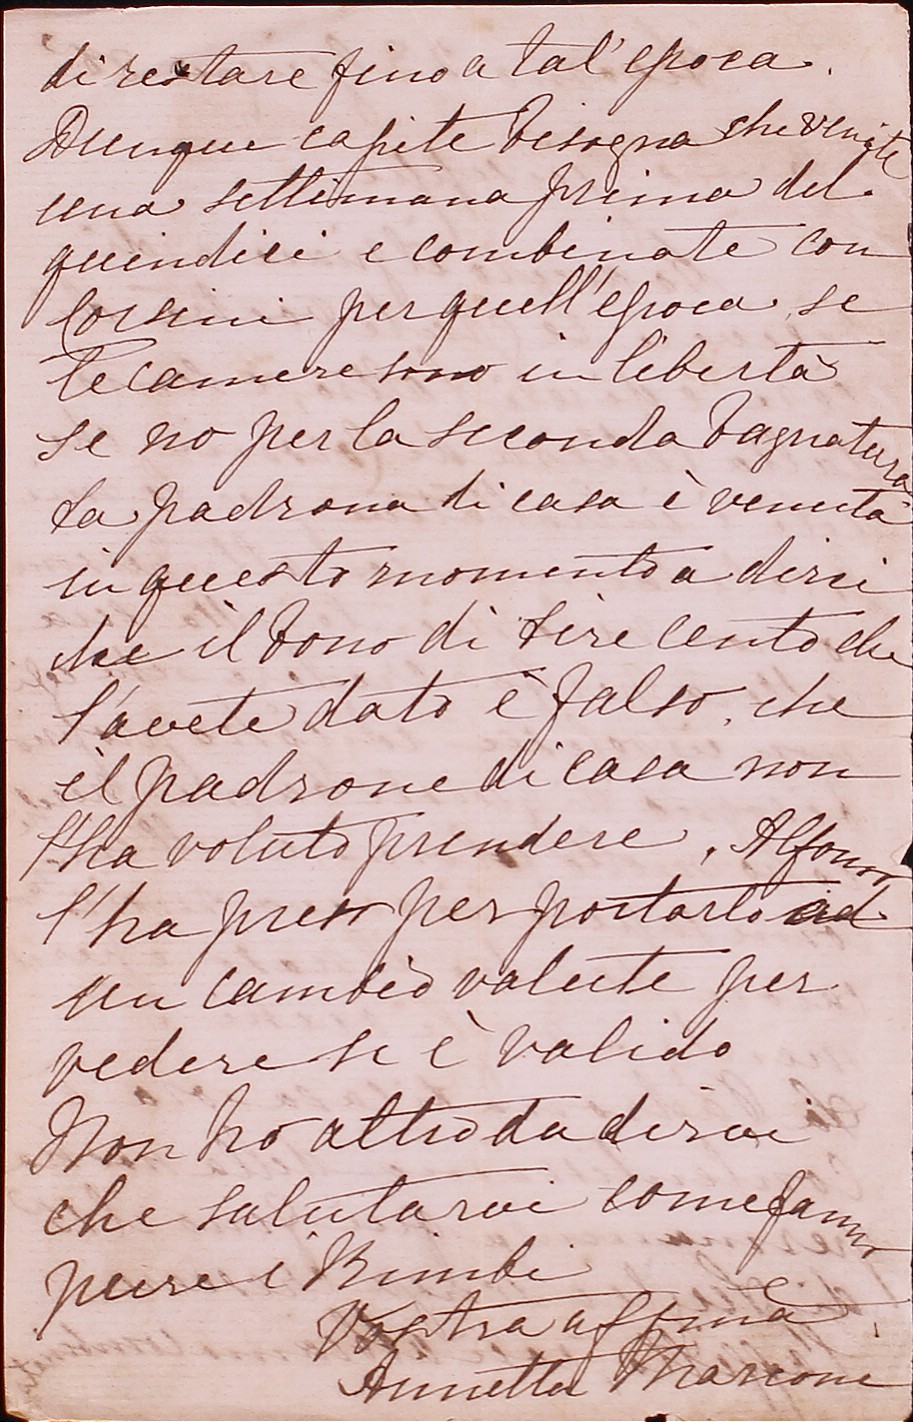 di restare fino a tal'epoca.
Dunque capite bisogna che venite
una settimana prima del
quindici e combinate con
Corsini per quell'epoca se
le camere sono in libertà
se no per la seconda bagnatura
La padrona di casa è venuta
in questo momento a dirci
che il bono di Lire cento che
l'avete dato è falso, che
il padrone di casa non
l'ha voluto prendere, Alfonso
l'ha preso per portarlo ad
un cambio valute per
vedere se è valido
Non ho altro da dirvi
che salutarvi come fanno
pure i Bimbi
Vostra affma
Annetta Marcone